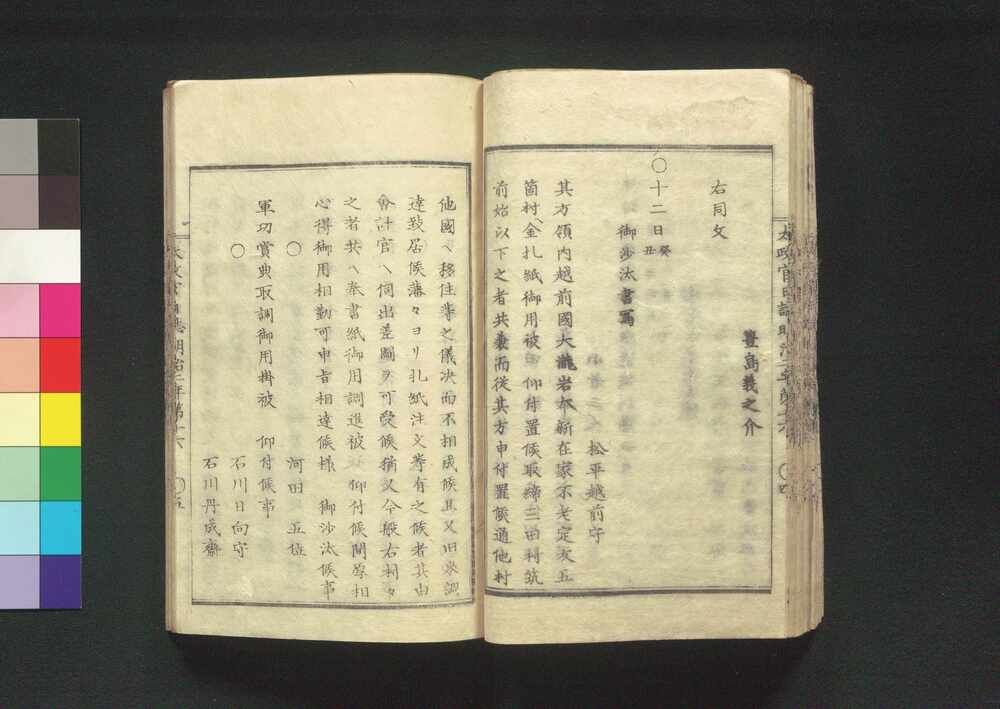 豊島義之介
右同文
○十二日癸丑
御沙汰書寫
松平越前守
其方領内越前國大瀧岩本新在家不老定友五
箇村ヘ金札紙御用被 仰付置候取締三田村筑
前始以下之者共兼而従其方申付置候通他村
他國ヘ移住等之儀決而不相成候其又旧来調
達致居候藩々ヨリ札紙注文等有之候者其由
會計官ヘ伺出差圖ヲ可受候猶又今般右村々
之者共ヘ奉書紙御用調進被 仰付候間厚相
心得御用相勤可申旨相達候様 御沙汰候事
○
河田 五位
軍功賞典取調御用掛被 仰付候事
○
石川日向守
石川丹成齋
太政官日誌明治二年第十六